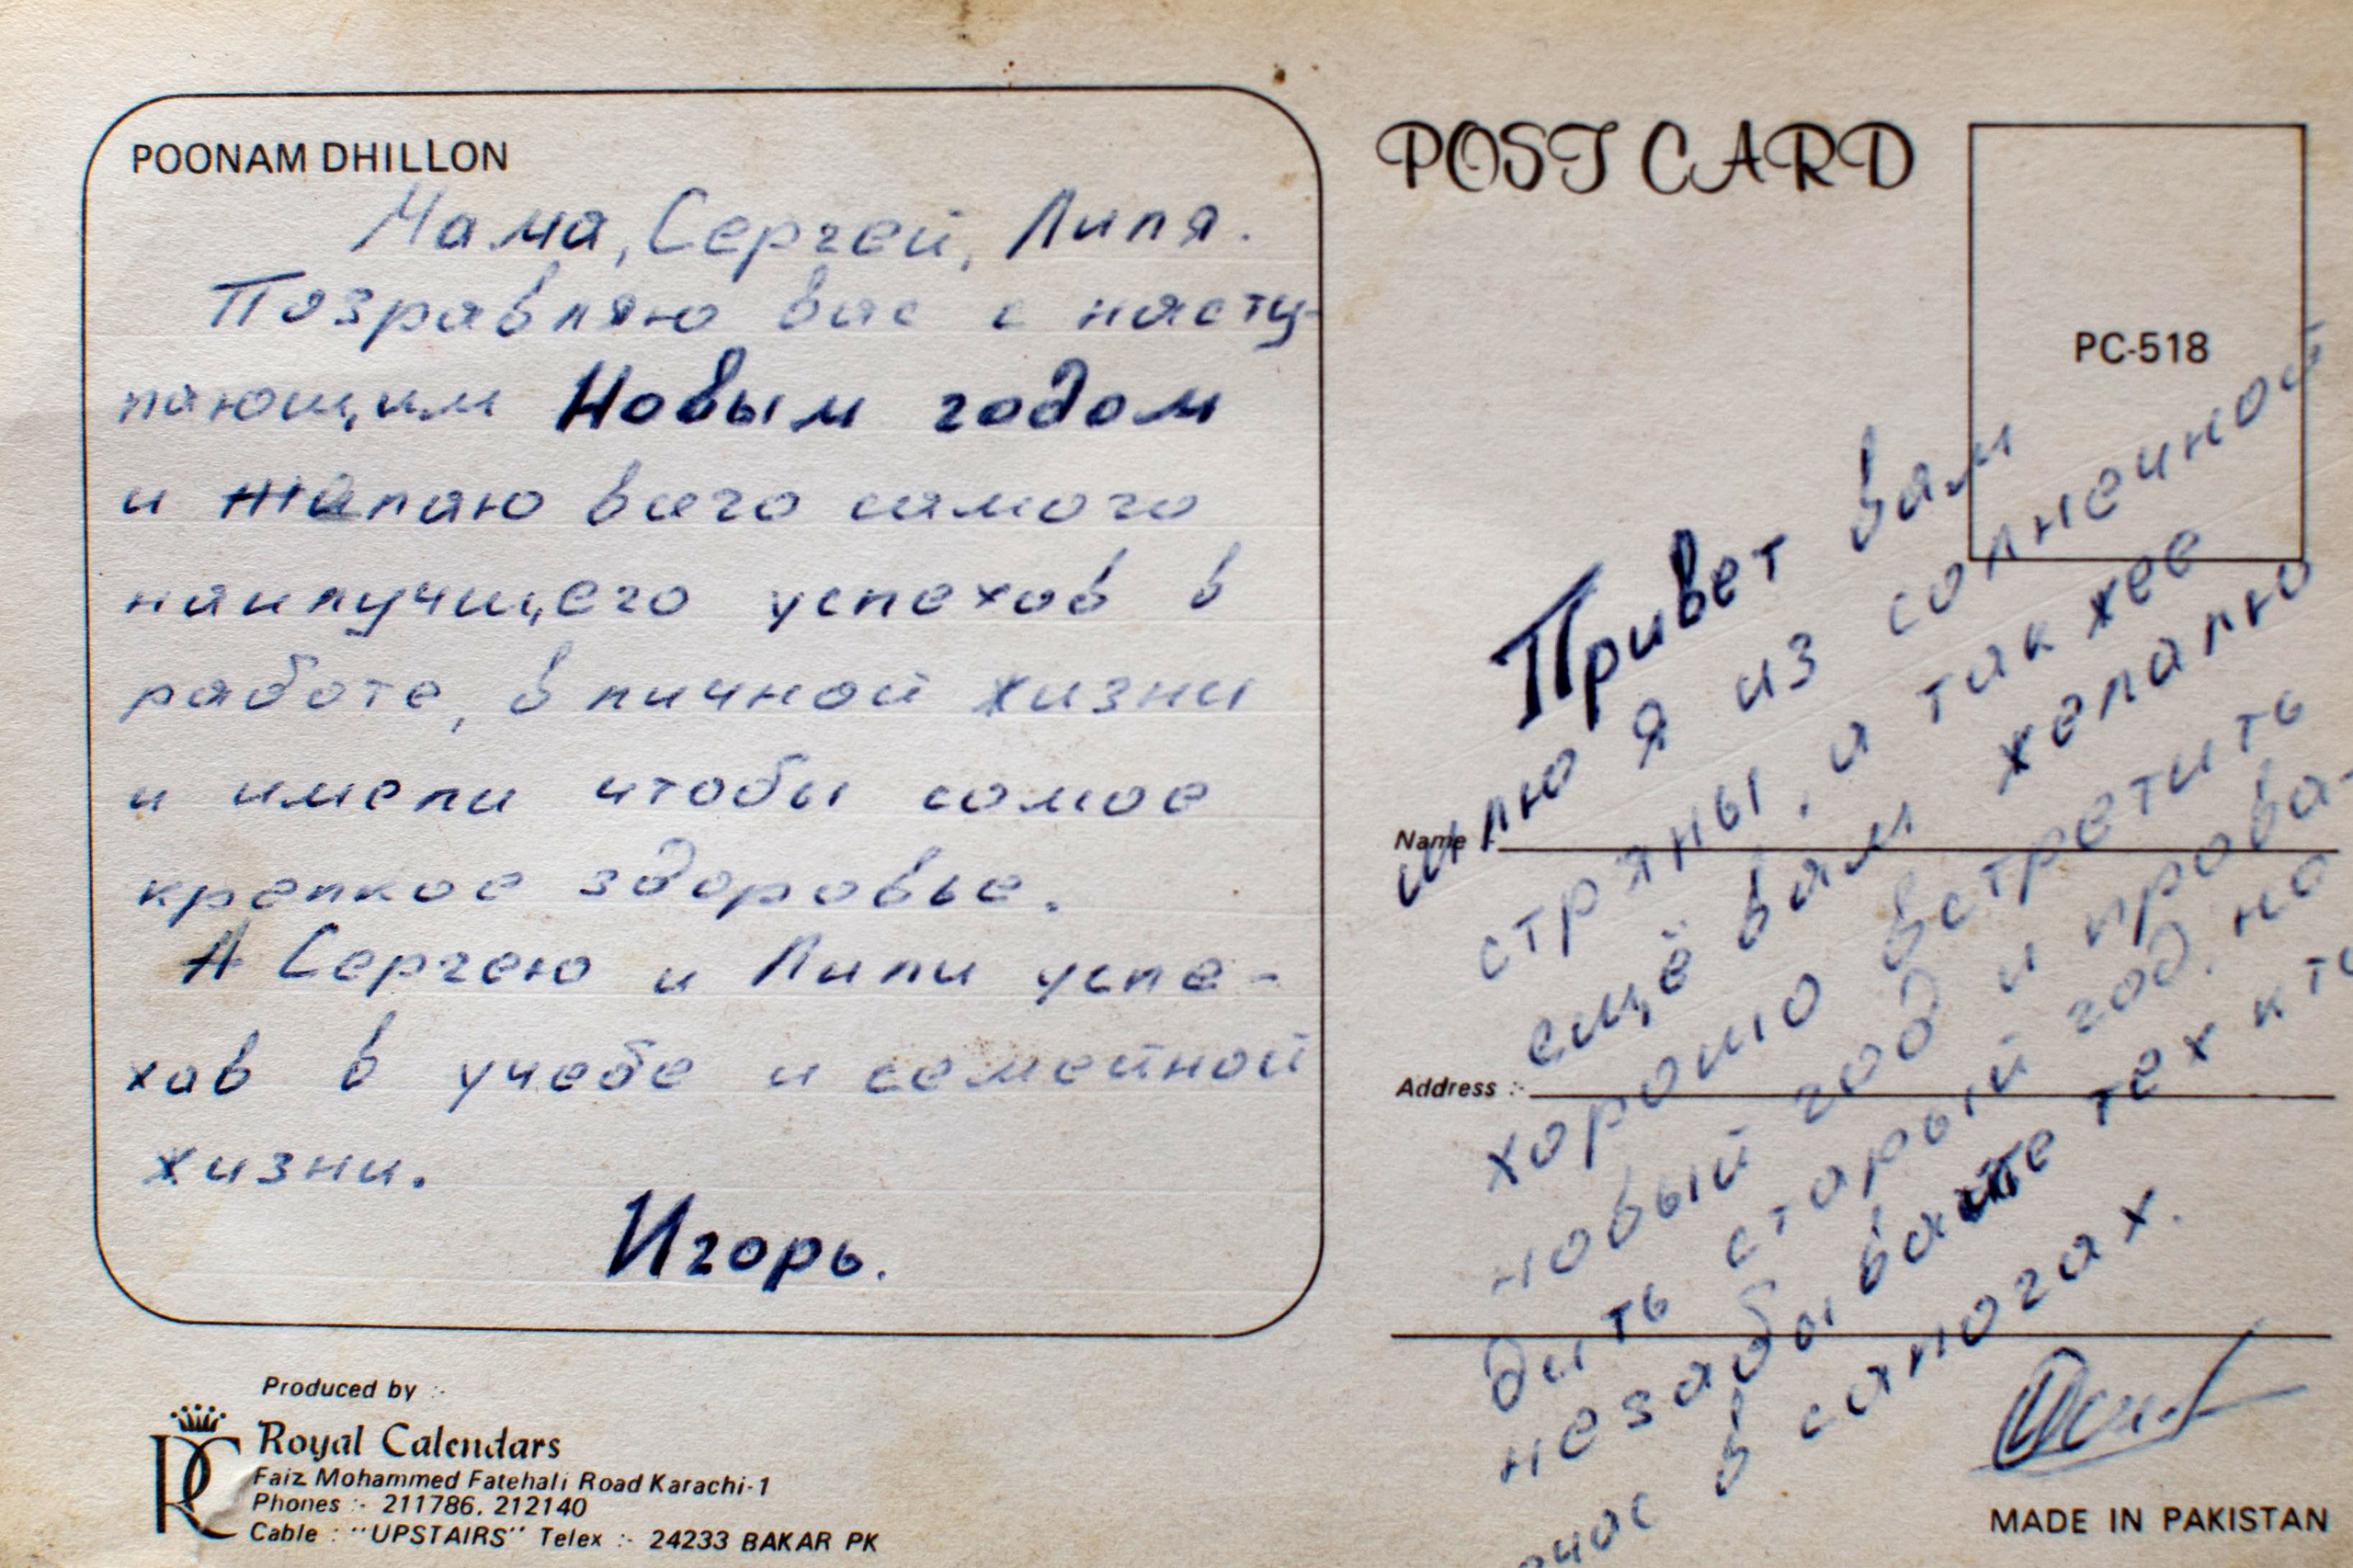 POONAM DHILLON
Мама, Сергей, Лиля.
Позравляю вас с насту-
пающим Новым годом
и жалаю всего самого
наилучщего успехов в
работе, в личной жизни
и имели чтобы самое
крепкое здоровье.
А Сергею и Лили успе-
хов в учебе и семейной
жизни.
Игорь.
Produced by :-
RC
Royal Calendars
Faiz Mohammed Fatehali Road Karachi-1
Phones :- 211786. 212140
Cable : "UPSTAIRS" Telex :- 24233 BAKAR PK
POST CARD
PC-518
Name :-
Address :-
Привет вам
шлю я из солнечной
страны, а также
ещё вам желаю
хорошо встретить
новый год и прова-
дить старый год, но
незабывайте тех кто
в сапогах.
MADE IN PAKISTAN